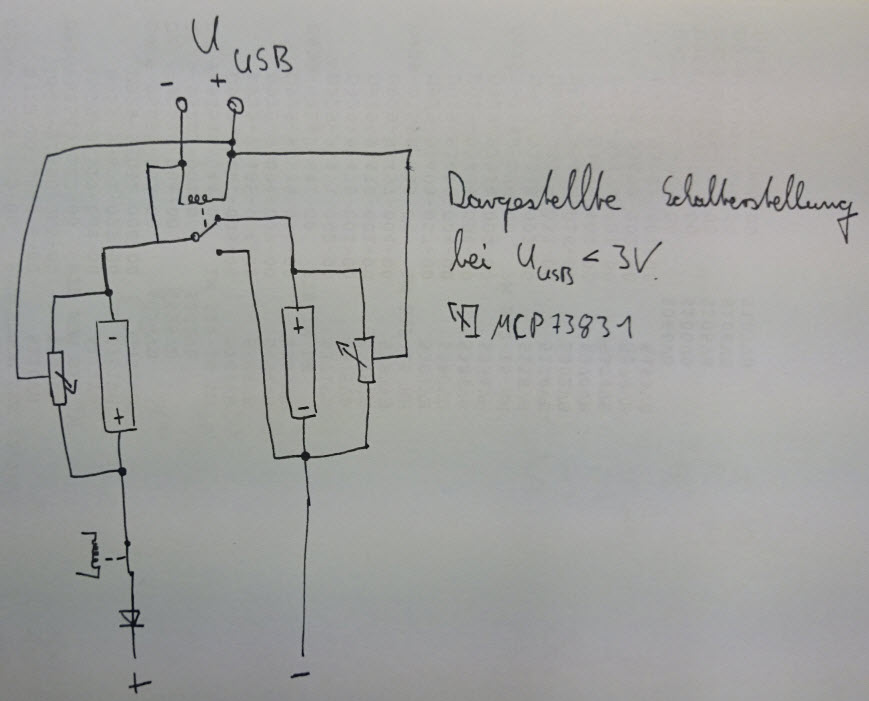 U USB
- +
Dargestellte Schalterstellung
bei U USB < 3V.
MCP73831
-
+
+
-
+ -